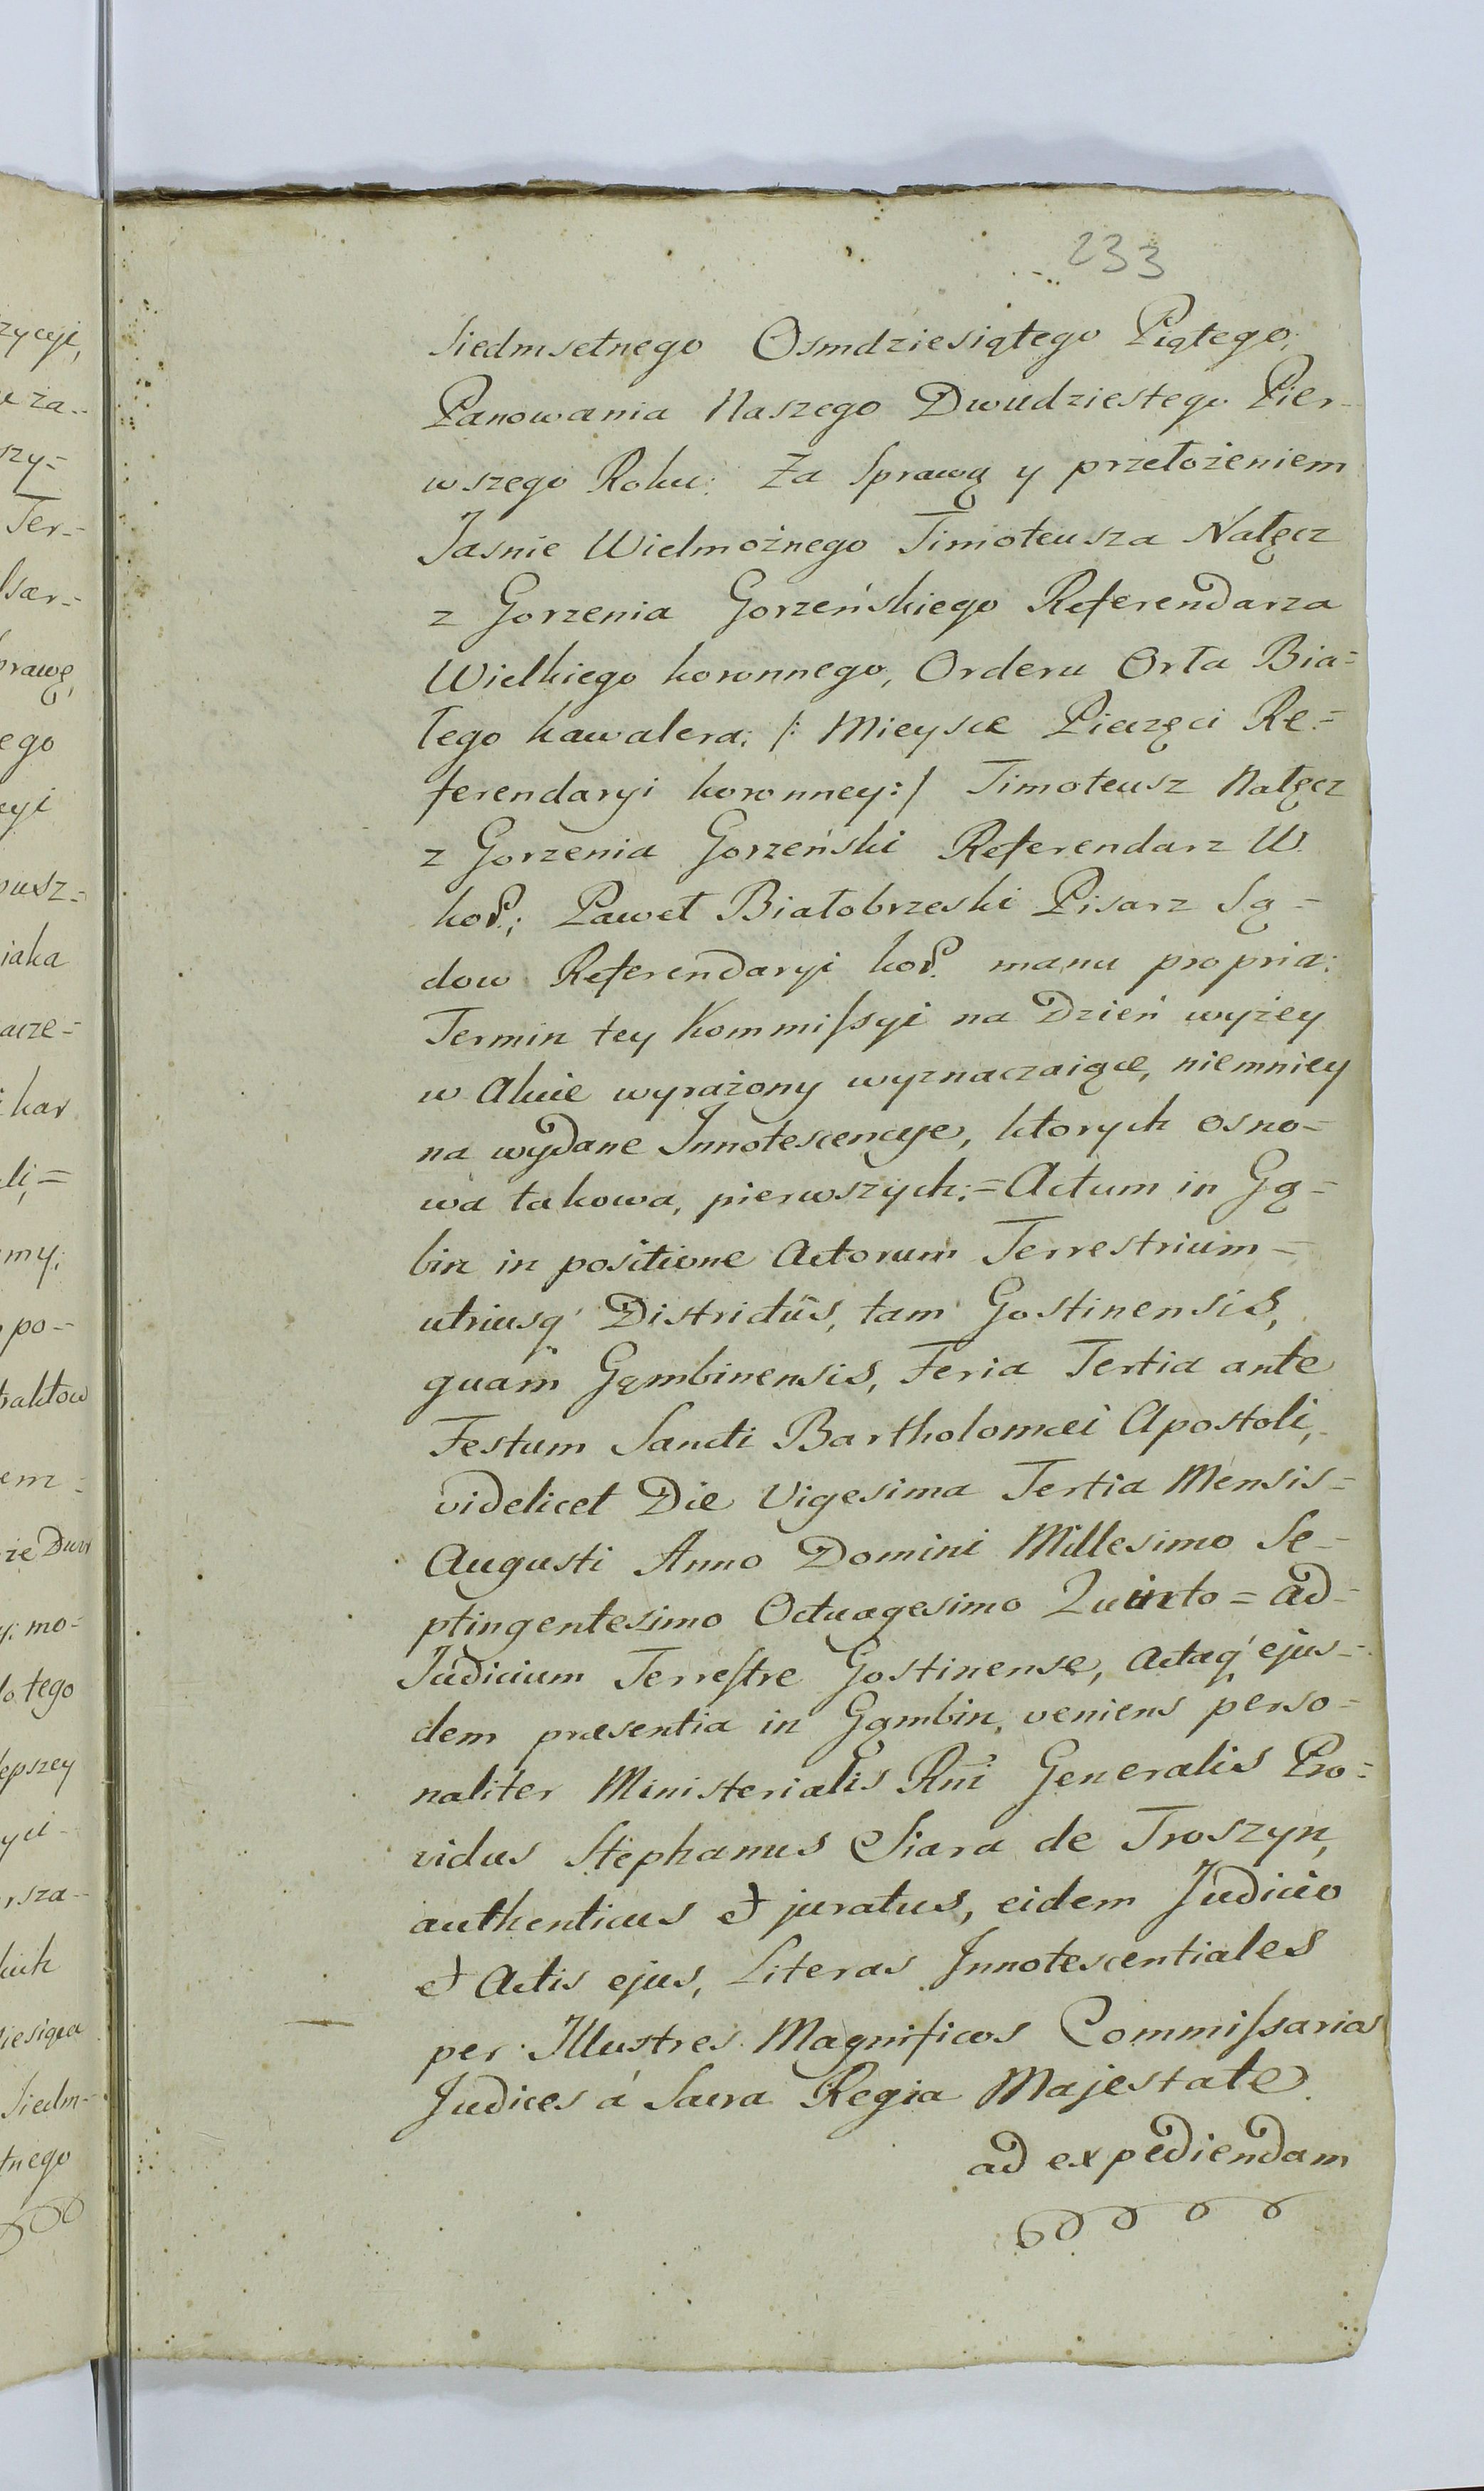 233
Siedmsetnego Osmdziesiątego Piątego;
Panowania Naszego Dwudziestego Pier-
wszego Roku: Za Sprawą y przełożeniem
Jasnie Wielmożnego Timoteusza Nałęcz
z Gorzenia Gorzeńskiego Referendarza
Wielkiego koronnego, Orderu Orła Bia=
łego kawalera; /: Mieysce Pieczęci Re=
ferendaryi koronney:/ Timoteusz Nałęcz
z Gorzenia Gorzeński Referendarz W.
kor.; Paweł Białobrzeski Pisarz Są=
dow Referendaryi kor. manu propria:
Termin tey Kommiſsyi na Dzień wyżey
w Akcie wyrażony wyznaczaiące, niemniey
na wydane Innotescencye, ktorych osno-
wa takowa, pierwszych: = Actum in Gą=
bin in positione Actorum Terrestrium =
utriusq' Districtûs, tam Gostinensis,
quam Gąmbinensis, Feria Tertia ante
Festum Sancti Bartholomæi Apostoli,
videlicet Die Vigesima Tertia Mensis =
Augusti Anno Domini Millesimo Se-
ptingentesimo Octuagesimo Quinto = ad
Judicium Terreſtre Gostinense, Actaq' ejus-
dem præsentia in Gąmbin, veniens perso-
naliter Ministerialis Rñi Generalis Pro=
vidus Stephanus Siara de Troszyn,
authenticus et juratus, eidem Judicio
et Actis ejus, Literas Innotescentiales
per Illustres Magnificos Commiſsarios
Judices á Sacra Regia Majestate
ad expediendam
zycyi,
Ter-
ego
pusz=
iaka
acze=
kar
my;
po-
traktow
mo=
do tego
lepszey
Siedm-
tnego